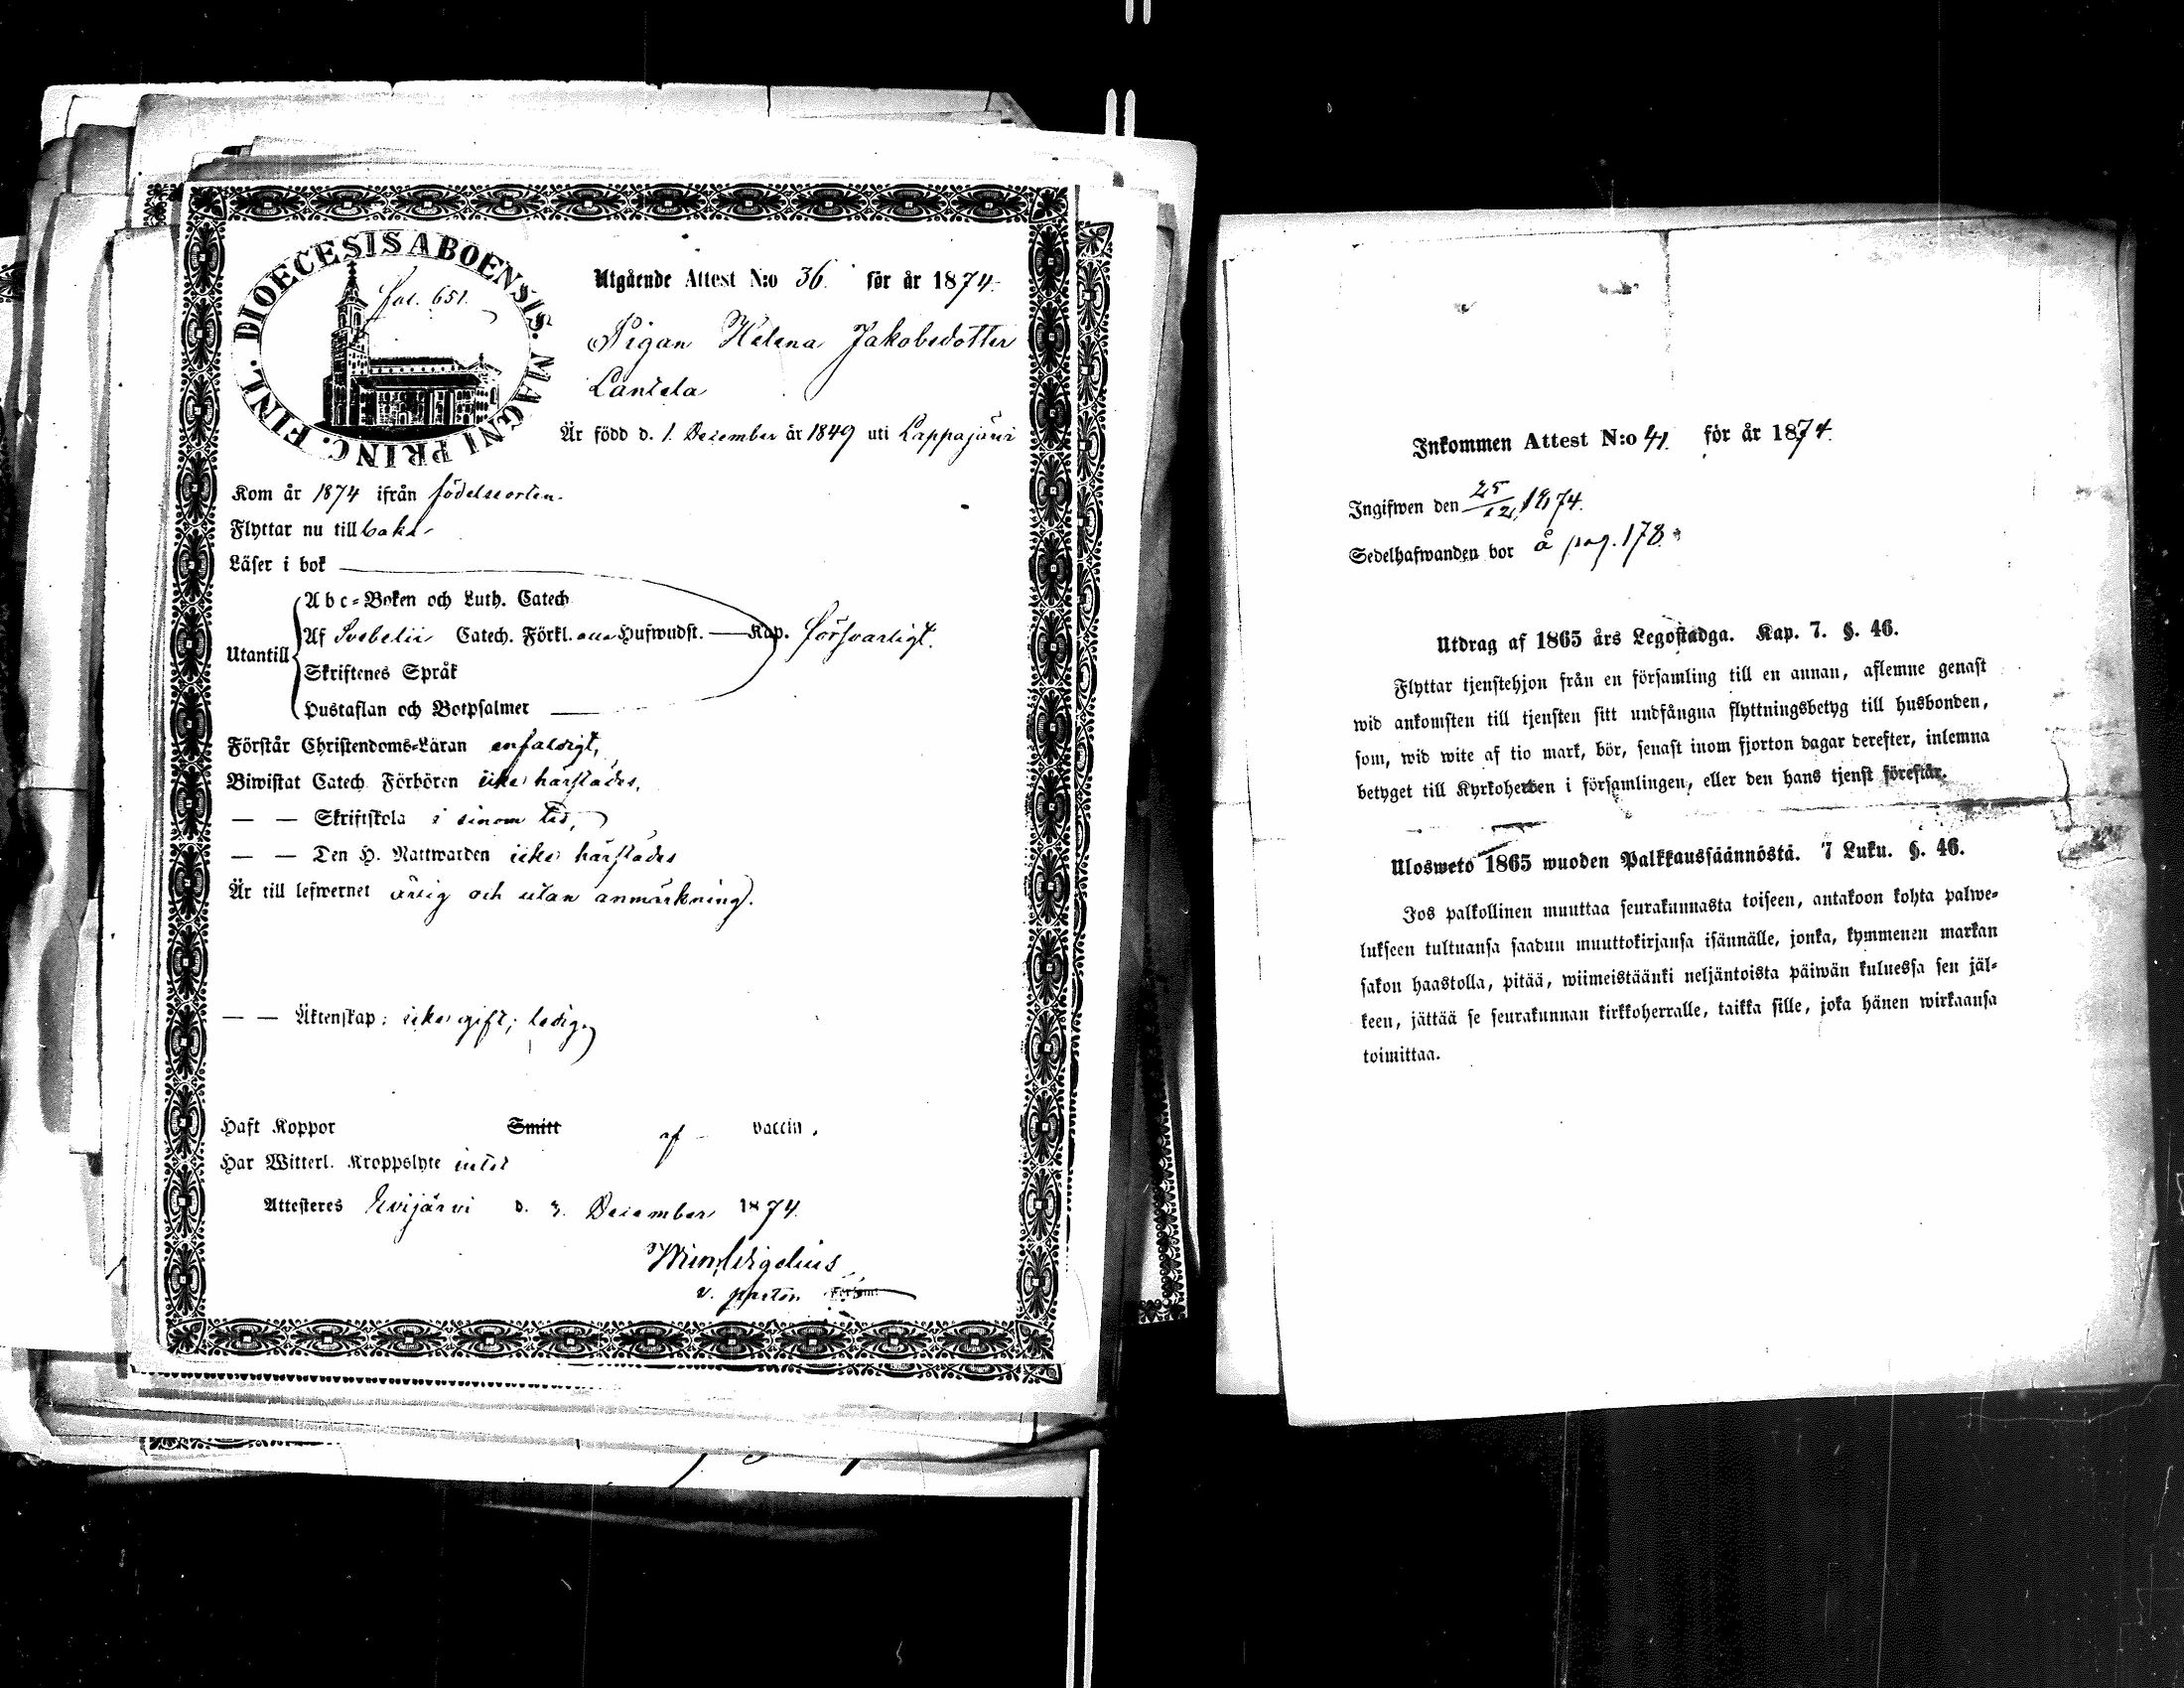 DIOECESIS ABOENSIS. MAGNI PRINC. FINL.
fol. 651.
Utgående Attest N:o 36. för år 1874.
Pigan Helena Jakobsdotter
Lantela
Är född d. 1. December år 1849 uti Lappajärvi
Kom år 1874 ifrån födelseorten.
Flyttar nu tillbaka
Läser i bok
Utantill
Abc-Boken och Luth. Catech.
Af Svebelii Catech. Förkl. alla Hufwudst. — Kap. försvarligt.
Skriftenes Språk
Hustaflan och Botpsalmer
Förstår Christendoms-Läran enfaldigt,
Biwistat Catech. Förhören icke härstädes,
— — Skriftskola i sinom tid,
— — Den H. Nattwarden icke härstädes
Är till lefwernet ärlig och utan anmärkning.
— — Äktenskap: icke gift; ledig.
Haft Koppor Smitt af vaccin.
Har Witterl. Kroppslyte intet
Attesteres Evijärvi d. 3. December 1874.
v. pastor Försml.
Inkommen Attest N:o 41. för år 1874.
Ingifwen den 25/12 1874.
Sedelhafwanden bor å pag. 178.
Utdrag af 1865 års Legostadga. Kap. 7. §. 46.
Flyttar tjenstehjon från en församling till en annan, aflemne genast
wid ankomsten till tjensten sitt undfångna flyttningsbetyg till husbonden,
som, wid wite af tio mark, bör, senast inom fjorton dagar derefter, inlemna
betyget till Kyrkoherden i församlingen, eller den hans tjenst förestår.
Ulosweto 1865 wuoden Palkkaussäännöstä. 7 Luku. §. 46.
Jos palkollinen muuttaa seurakunnasta toiseen, antakoon kohta palwe-
lukseen tultuansa saadun muuttokirjansa isännälle, jonka, kymmenen markan
sakon haastolla, pitää, wiimeistäänki neljäntoista päiwän kuluessa sen jäl-
keen, jättää se seurakunnan kirkkoherralle, taikka sille, joka hänen wirkaansa
toimittaa.